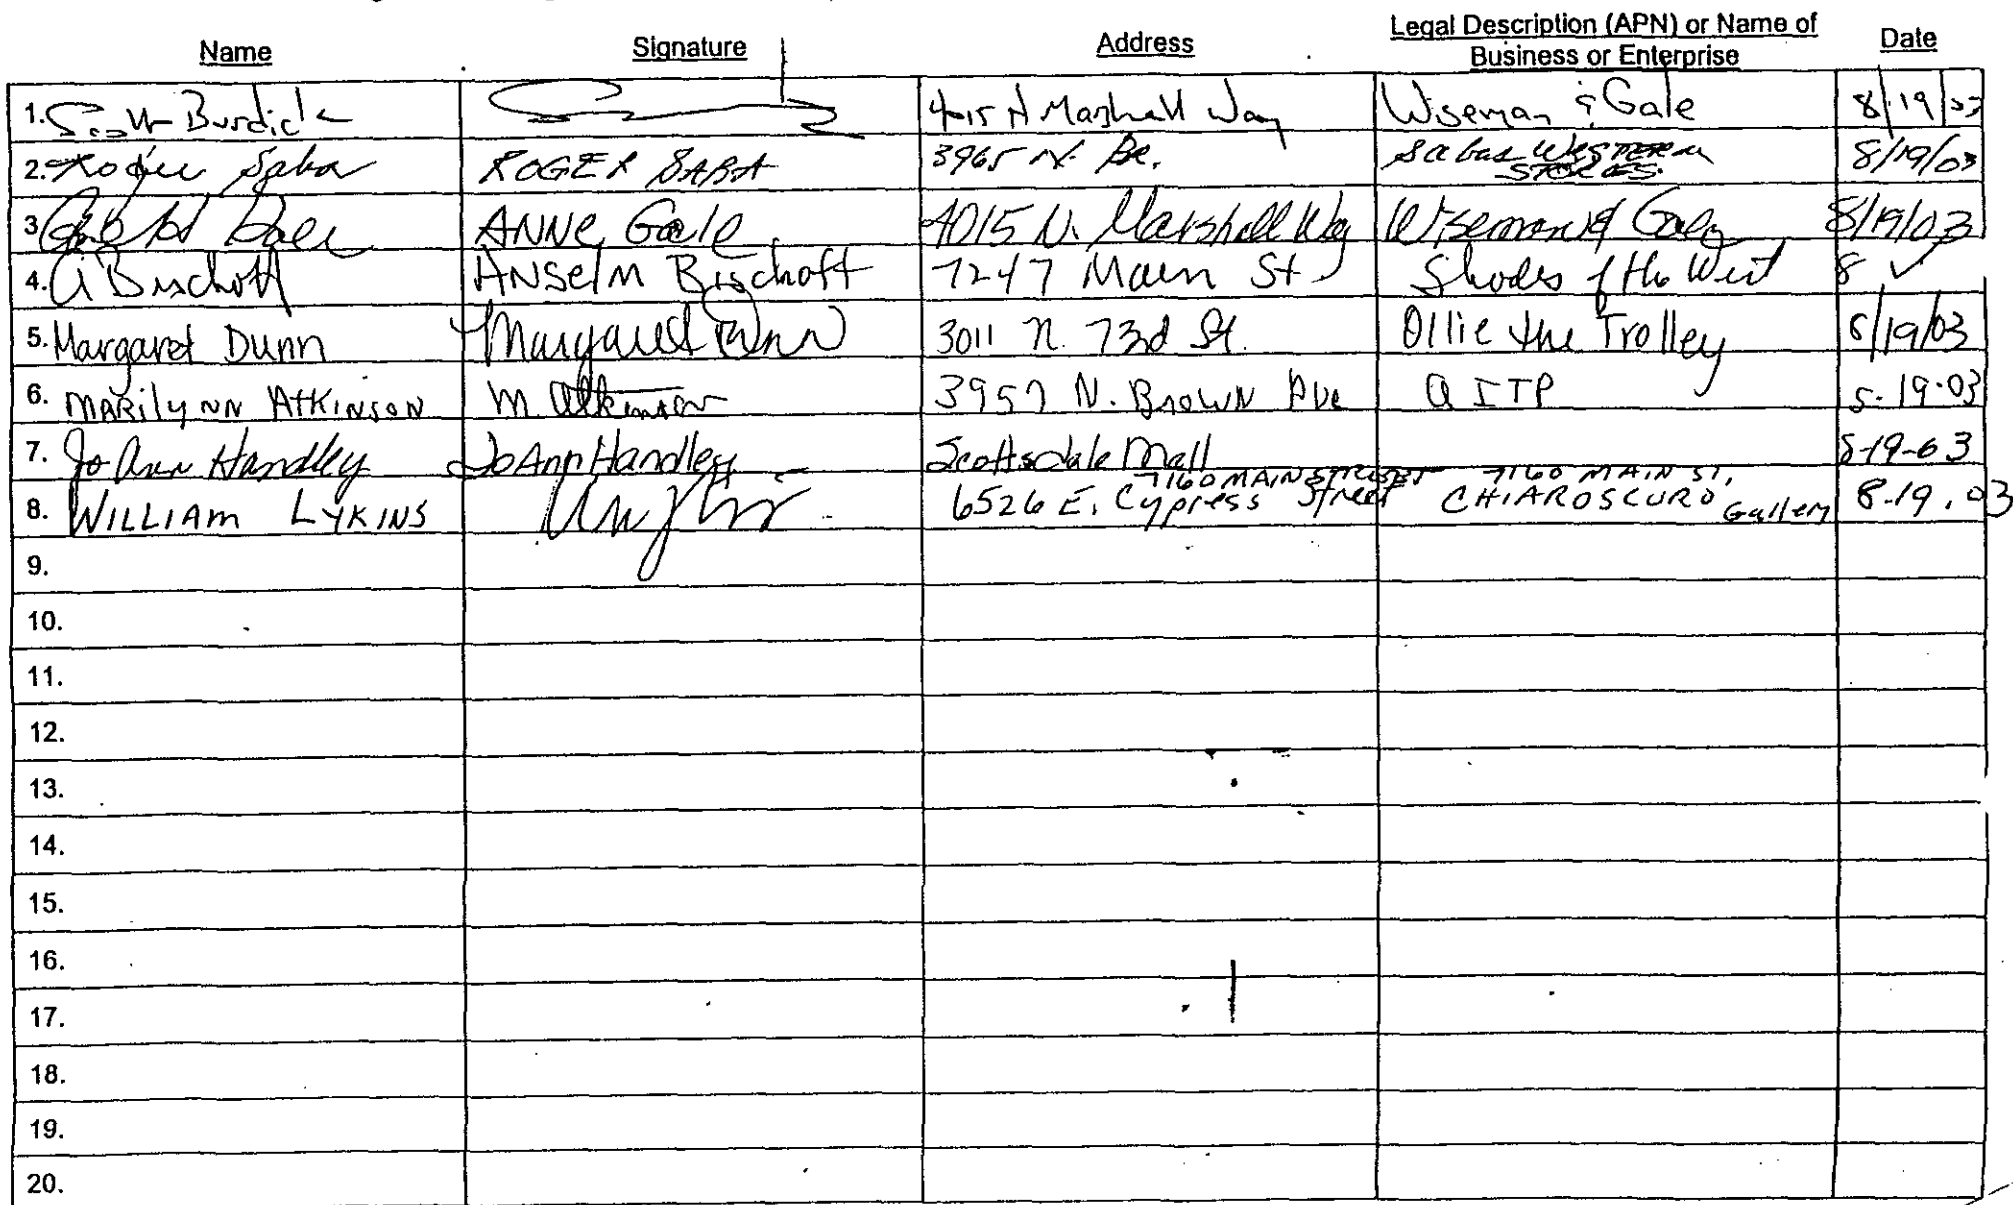 Name Signature Address Legal Description (APN) or Name of Business or Enterprise Date
1. Scott Burdick 4015 N Marshall Way Wiseman & Gale 8/19/03
2. Roger Saba ROGER SABA 3965 N. Br. Sabas Western STORES 8/19/03
3. Gale ANNE Gale 4015 N. Marshall Way Wiseman & Gale 8/19/03
4. A Bischoff Anselm Bischoff 7247 Main St Shades of the West 8 ✓
5. Margaret Dunn Margaret Dunn 3011 N. 73rd St. Ollie the Trolley 8/19/03
6. MARilyNN AtKINSON M Atkinson 3957 N. BROWN Ave QITP 8-19-03
7. Jo Ann Handley JoAnn Handley Scottsdale Mall 8-19-03
7160 MAIN STREET 7160 MAIN ST,
8. WILLIAM LYKINS 6526 E. Cypress Street CHIAROSCURO Gallery 8-19.03
9.
10.
11.
12.
13.
14.
15.
16.
17.
18.
19.
20.